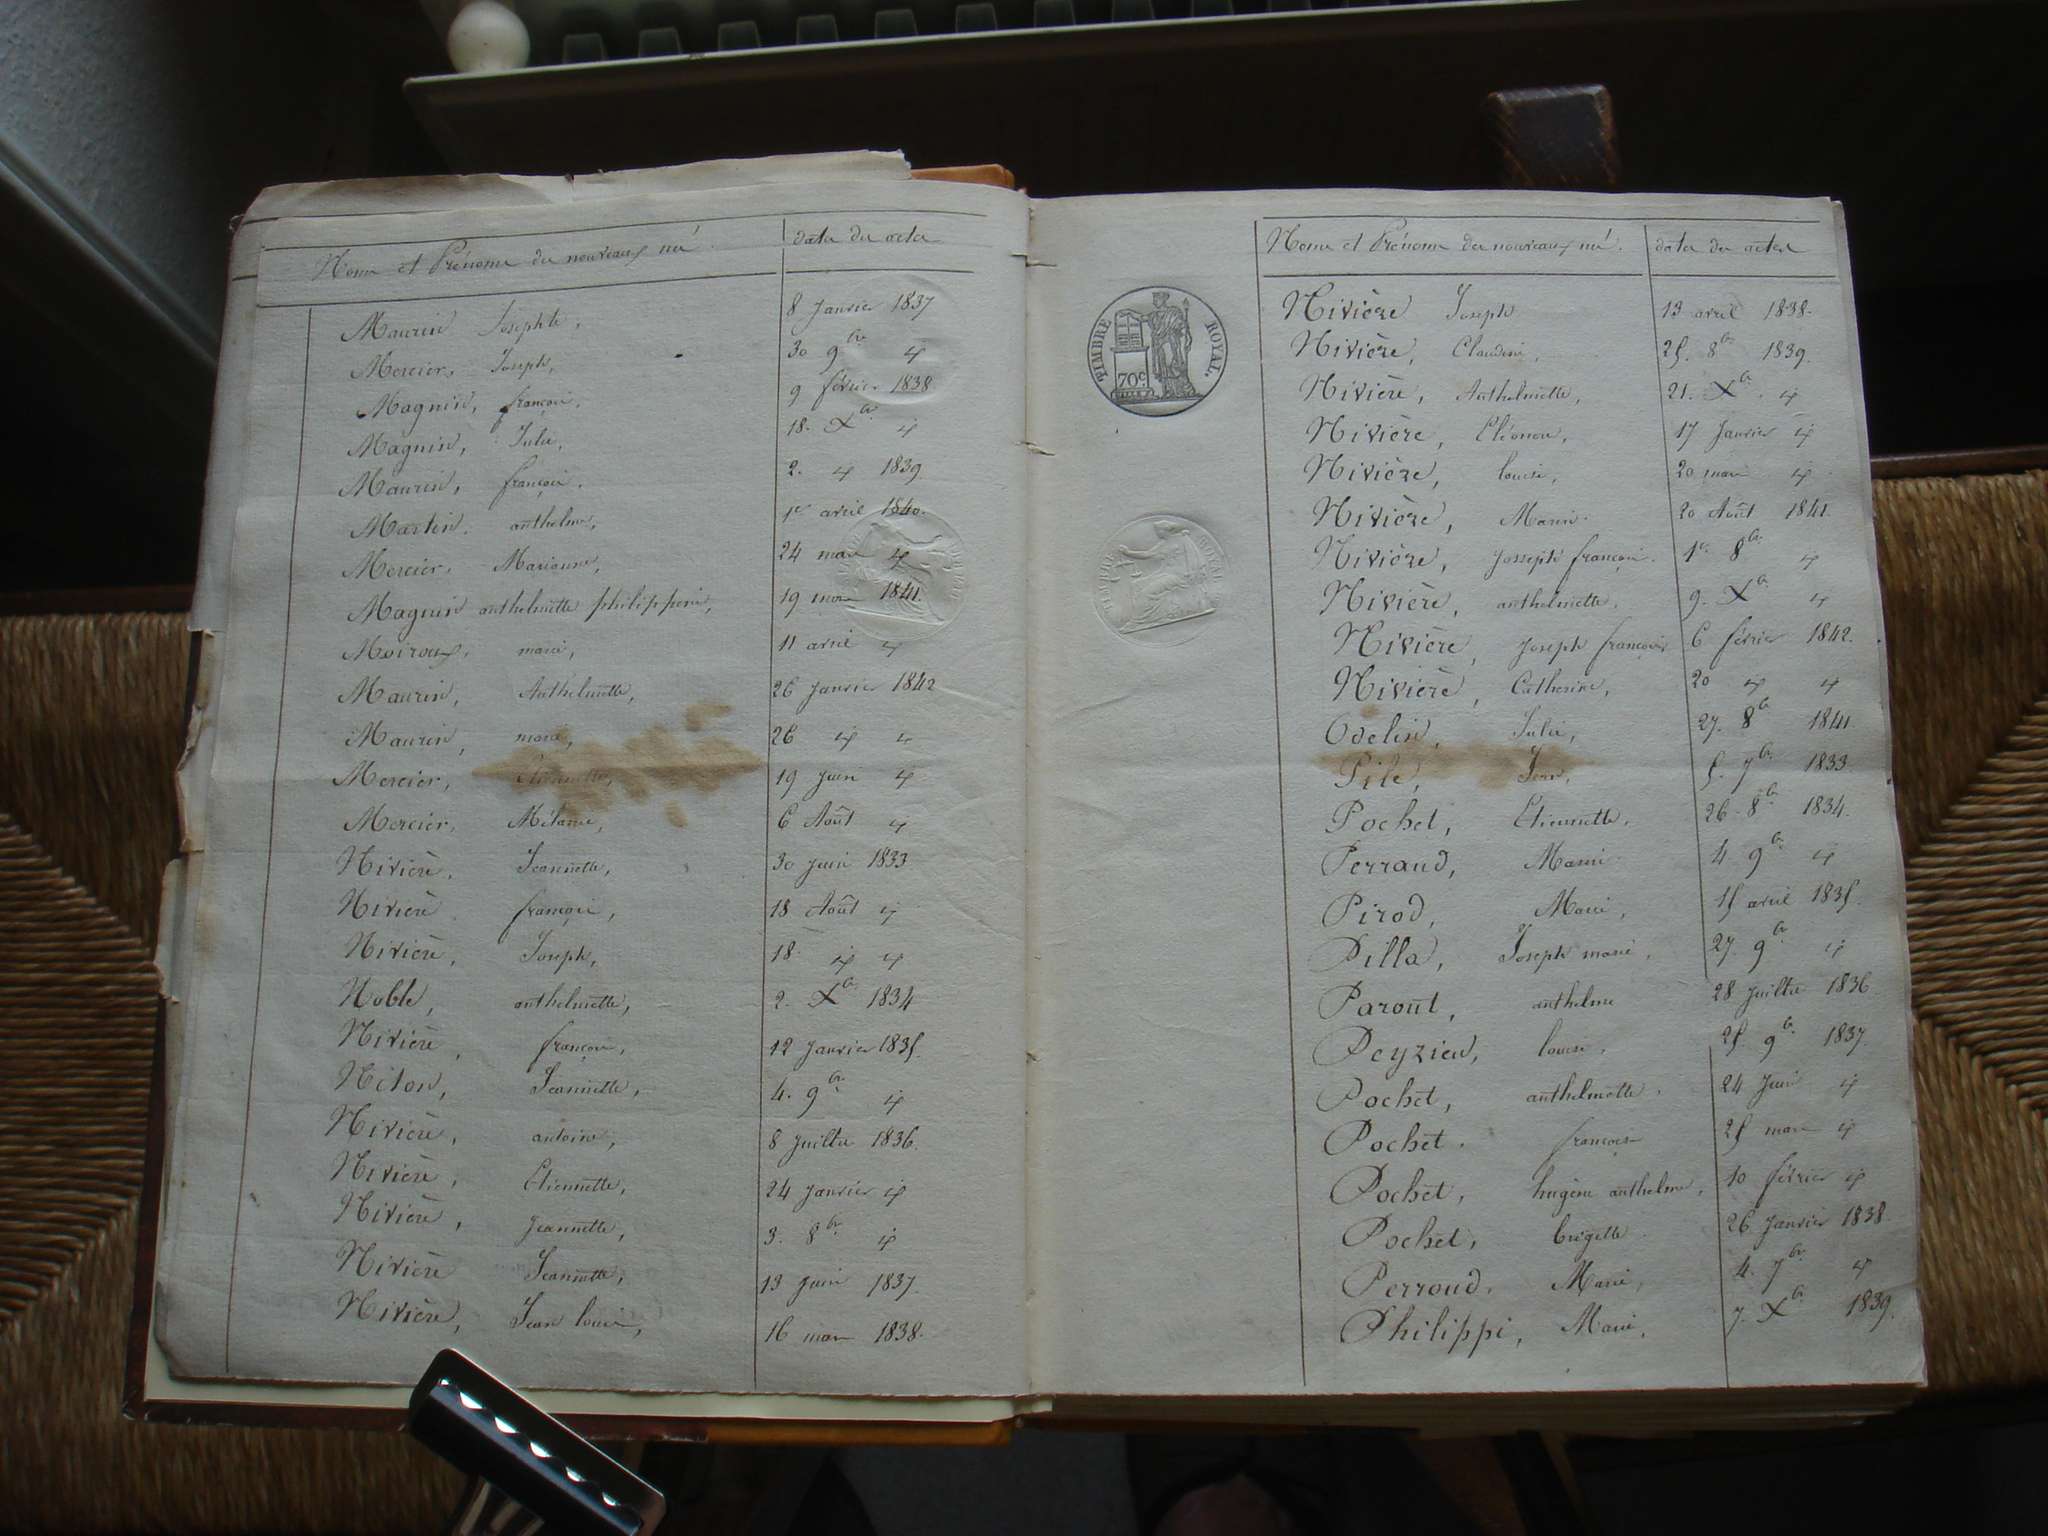 Noms et Prénoms des nouveaux né. dates des actes
Maurin Josephte, 8 Janvier 1837
Mercier, Joseph, 30 9bre 4
Magnin, françois, 9 février 1838
Magnin, Julie, 18. Xbre 4
Maurin, françois, 2. 4 1839
Martin. anthelme, 1er avril 1840.
Mercier, Marianne, 24 mars 4
Magnin anthelmette philippine, 19 mars 1841.
Moiroux, marie, 11 avril 4
Maurin, Anthelmette, 26 Janvier 1842
Maurin, marie, 26 4 4
Mercier, Etiennette, 19 Juin 4
Mercier, Mélanie, 6 Août 4
Nivière, Jeannette, 30 Juin 1833
Nivière françois, 18 Août 4
Nivière, Joseph, 18. 4 4
Noble, anthelmette, 2. Xbre 1834
Nivière, françois, 12 Janvier 1835.
Néton, Jeannette, 4. 9bre 4
Nivière, antoine, 8 Juillet 1836.
Nivière, Etiennette, 24 Janvier 4
Nivière, Jeannette, 3. 8bre 4
Nivière Jeannette, 13 Juin 1837.
Nivière, Jean louis, 16 mars 1838.
TIMBRE ROYAL.
70c
Noms et Prénoms des nouveaux né. dates des actes
Nivière Joseph 13 avril 1838.
Nivière, Claudine, 25. 8bre 1839.
Nivière, Anthelmette, 21. Xbre. 4
Nivière, Eléonore, 17 Janvier 4
Nivière, louise, 20 mars 4
Nivière, Marie. 20 Août 1841.
Nivière, Josseph françois. 1er 8bre 4
Nivière, anthelmette, 9. Xbre 4
Nivière, Joseph françois 6 février 1842.
Nivière, Catherine, 20 4 4
Odelin, Julie, 27. 8bre 1841
Pile, Jean, 5. 7bre 1833
Pochet, Etiennette. 26. 8bre 1834.
Perraud, Marie 4 9bre 4
Pirod, Marie, 15 avril 1835.
Pilla, Joseph marie, 27. 9bre 4
Parout, anthelme 28 Juillet 1836
Peyzieu, louise. 25 9bre 1837.
Pochet, anthelmette. 24 Juin 4
Pochet. françois 25 mars 4
Pochet, hugène anthelme, 10 février 4
Pochet, brigette 26 Janvier 1838.
Perroud. Marie, 4. 7bre 4
Philippi, Marie, 7. Xbre 1839.